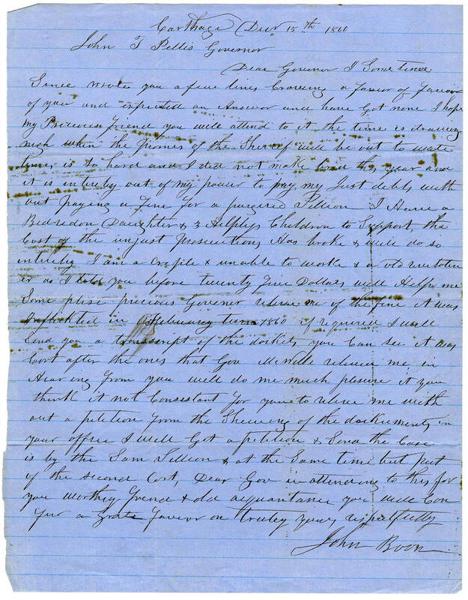 Carthage Decr 15th 1860
John T Pettis Governor
Dear Govenor I Some time
Since wrote you a fiew lines Craveing a favor of favour
of you and expected an Answer and have got none I hope
my Precious friend you will attend to it the time is drawing
nigh when the of the Sherriff will be out to wate
times is so hard and I did not make this year and
it is intirely out of my power to pay my Just debts with
out paying a fine for a purgered I Have a
Bedridon Daughter & 3 Helpless Children to Support the
Cost of the unjust Prosecutions Has broke & will do so
intirely I am a Criple & unable to worke & a old
is as I told you before twenty five Dollars will Helpe me
Some please precious Govenor releive me of the fine it was
in February term 1860 if required I will
Send you a transcript of the dockets you can See it was
Cort after the ones that Gov releived me in
Hearing from you will do me much plesure if you
think it not Consistant for you to releive me with
out a petition from the Shewing of the dockuments in
your office I will Got a petition & Send the Case
is by the Sam & at the Same time but part
of the second Cort, Dear Gov in attending to this for
you worthy friend & old acquaintance you will Con
fer a Grate favor on truley yours respectfully
John Boon